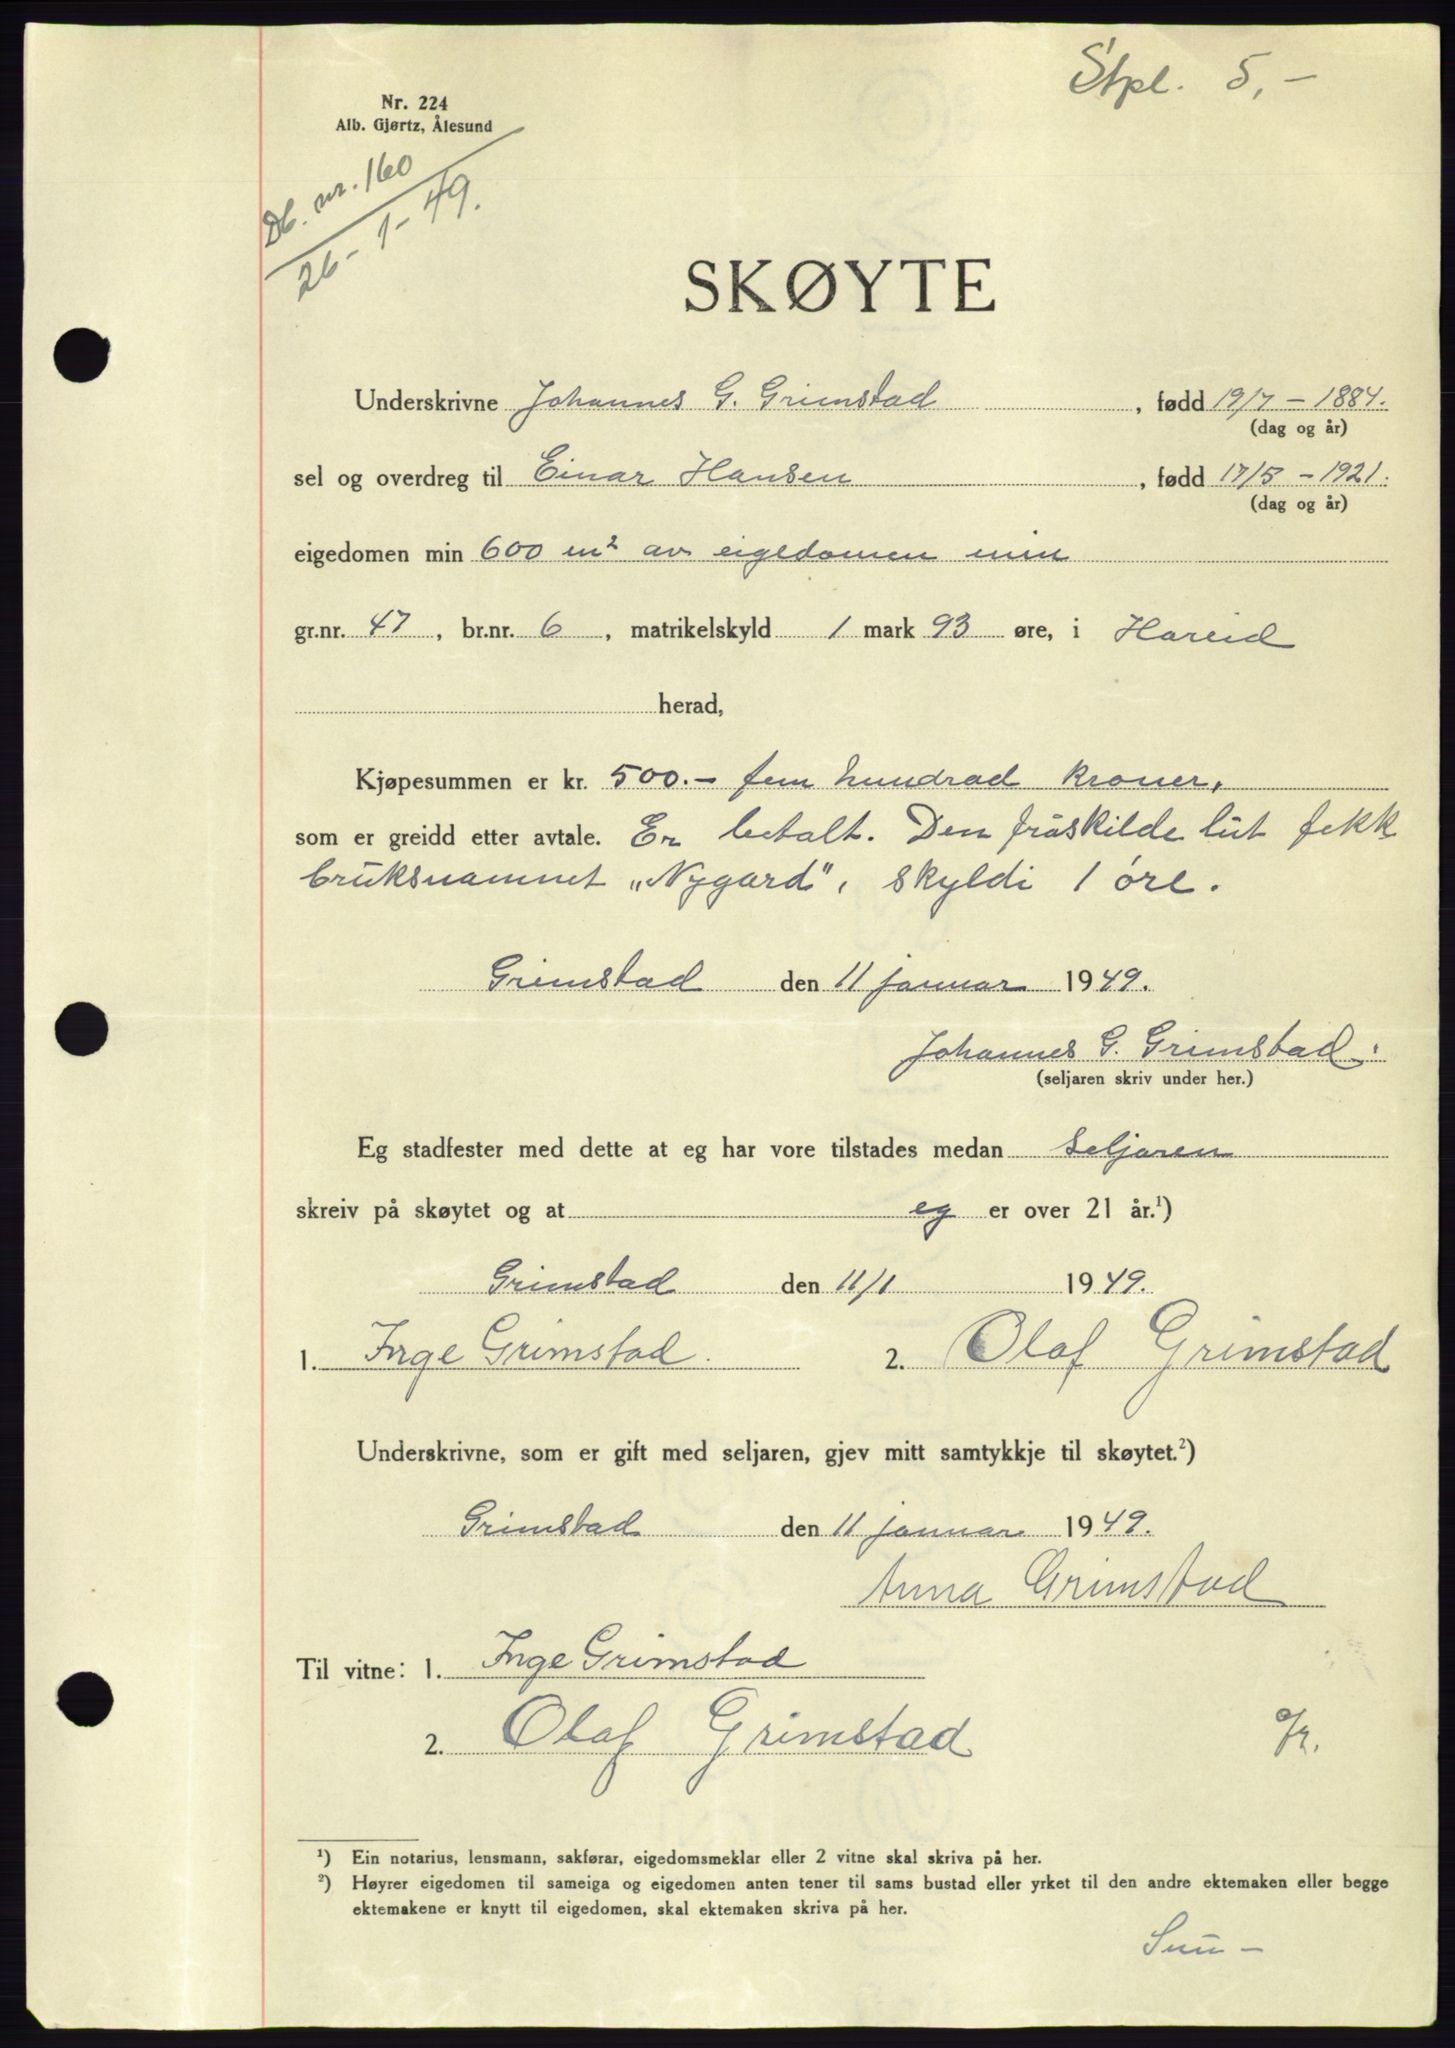 Stpl. 5,-
Nr. 224
Alb. Gjørtz, Ålesund
Db. nr. 160
26-1-49.
SKØYTE
Underskrivne Johannes G. Grimstad, fødd 19/7-1884.
(dag og år)
sel og overdreg til Einar Hansen, fødd 17/5-1921.
(dag og år)
eigedomen min 600 m² av eigedomen min
gr.nr. 47, br.nr. 6, matrikelskyld 1 mark 93 øre, i Hareid
herad,
Kjøpesummen er kr. 500.- fem hundrad kroner,
som er greidd etter avtale. Er betalt. Den fråskilde lut fekk
bruksnamnet „Nygard", skyldi 1 øre.
Grimstad den 11 januar 1949.
Johannes G. Grimstad.
(seljaren skriv under her.)
Eg stadfester med dette at eg har vore tilstades medan seljaren
skreiv på skøytet og at eg er over 21 år.¹)
Grimstad den 11/1 1949.
1. Inge Grimstad. 2. Olaf Grimstad
Underskrivne, som er gift med seljaren, gjev mitt samtykkje til skøytet.²)
Grimstad den 11 januar 1949.
Anna Grimstad
Til vitne: 1. Inge Grimstad
2. Olaf Grimstad
¹) Ein notarius, lensmann, sakførar, eigedomsmeklar eller 2 vitne skal skriva på her.
²) Høyrer eigedomen til sameiga og eigedomen anten tener til sams bustad eller yrket til den andre ektemaken eller begge
ektemakene er knytt til eigedomen, skal ektemaken skriva på her.